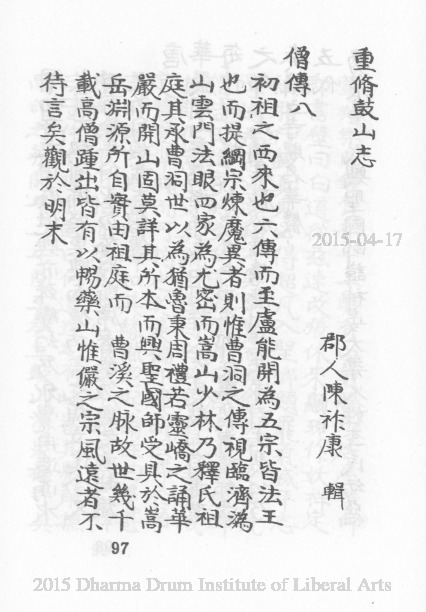 重脩鼓山志
郡人陳祚康 輯
僧傳八
初祖之西來也六傳而至盧能開為五宗皆法王
也而提綱宗煉魔異者則惟曹洞之傳視臨濟溈
山雲門法眼四家為尤密而嵩山少林乃釋氏祖
庭其承曹洞世以為猶魯秉周禮若靈嶠之誦華
嚴而開山固莫詳其所本而興聖國師受具於嵩
岳淵源所自實由祖庭而 曹溪之脉故世幾千
載高僧踵出皆有以暢藥山惟儼之宗風遠者不
待言矣觀於明末
97
2015-04-17
2015 Dharma Drum Institute of Liberal Arts